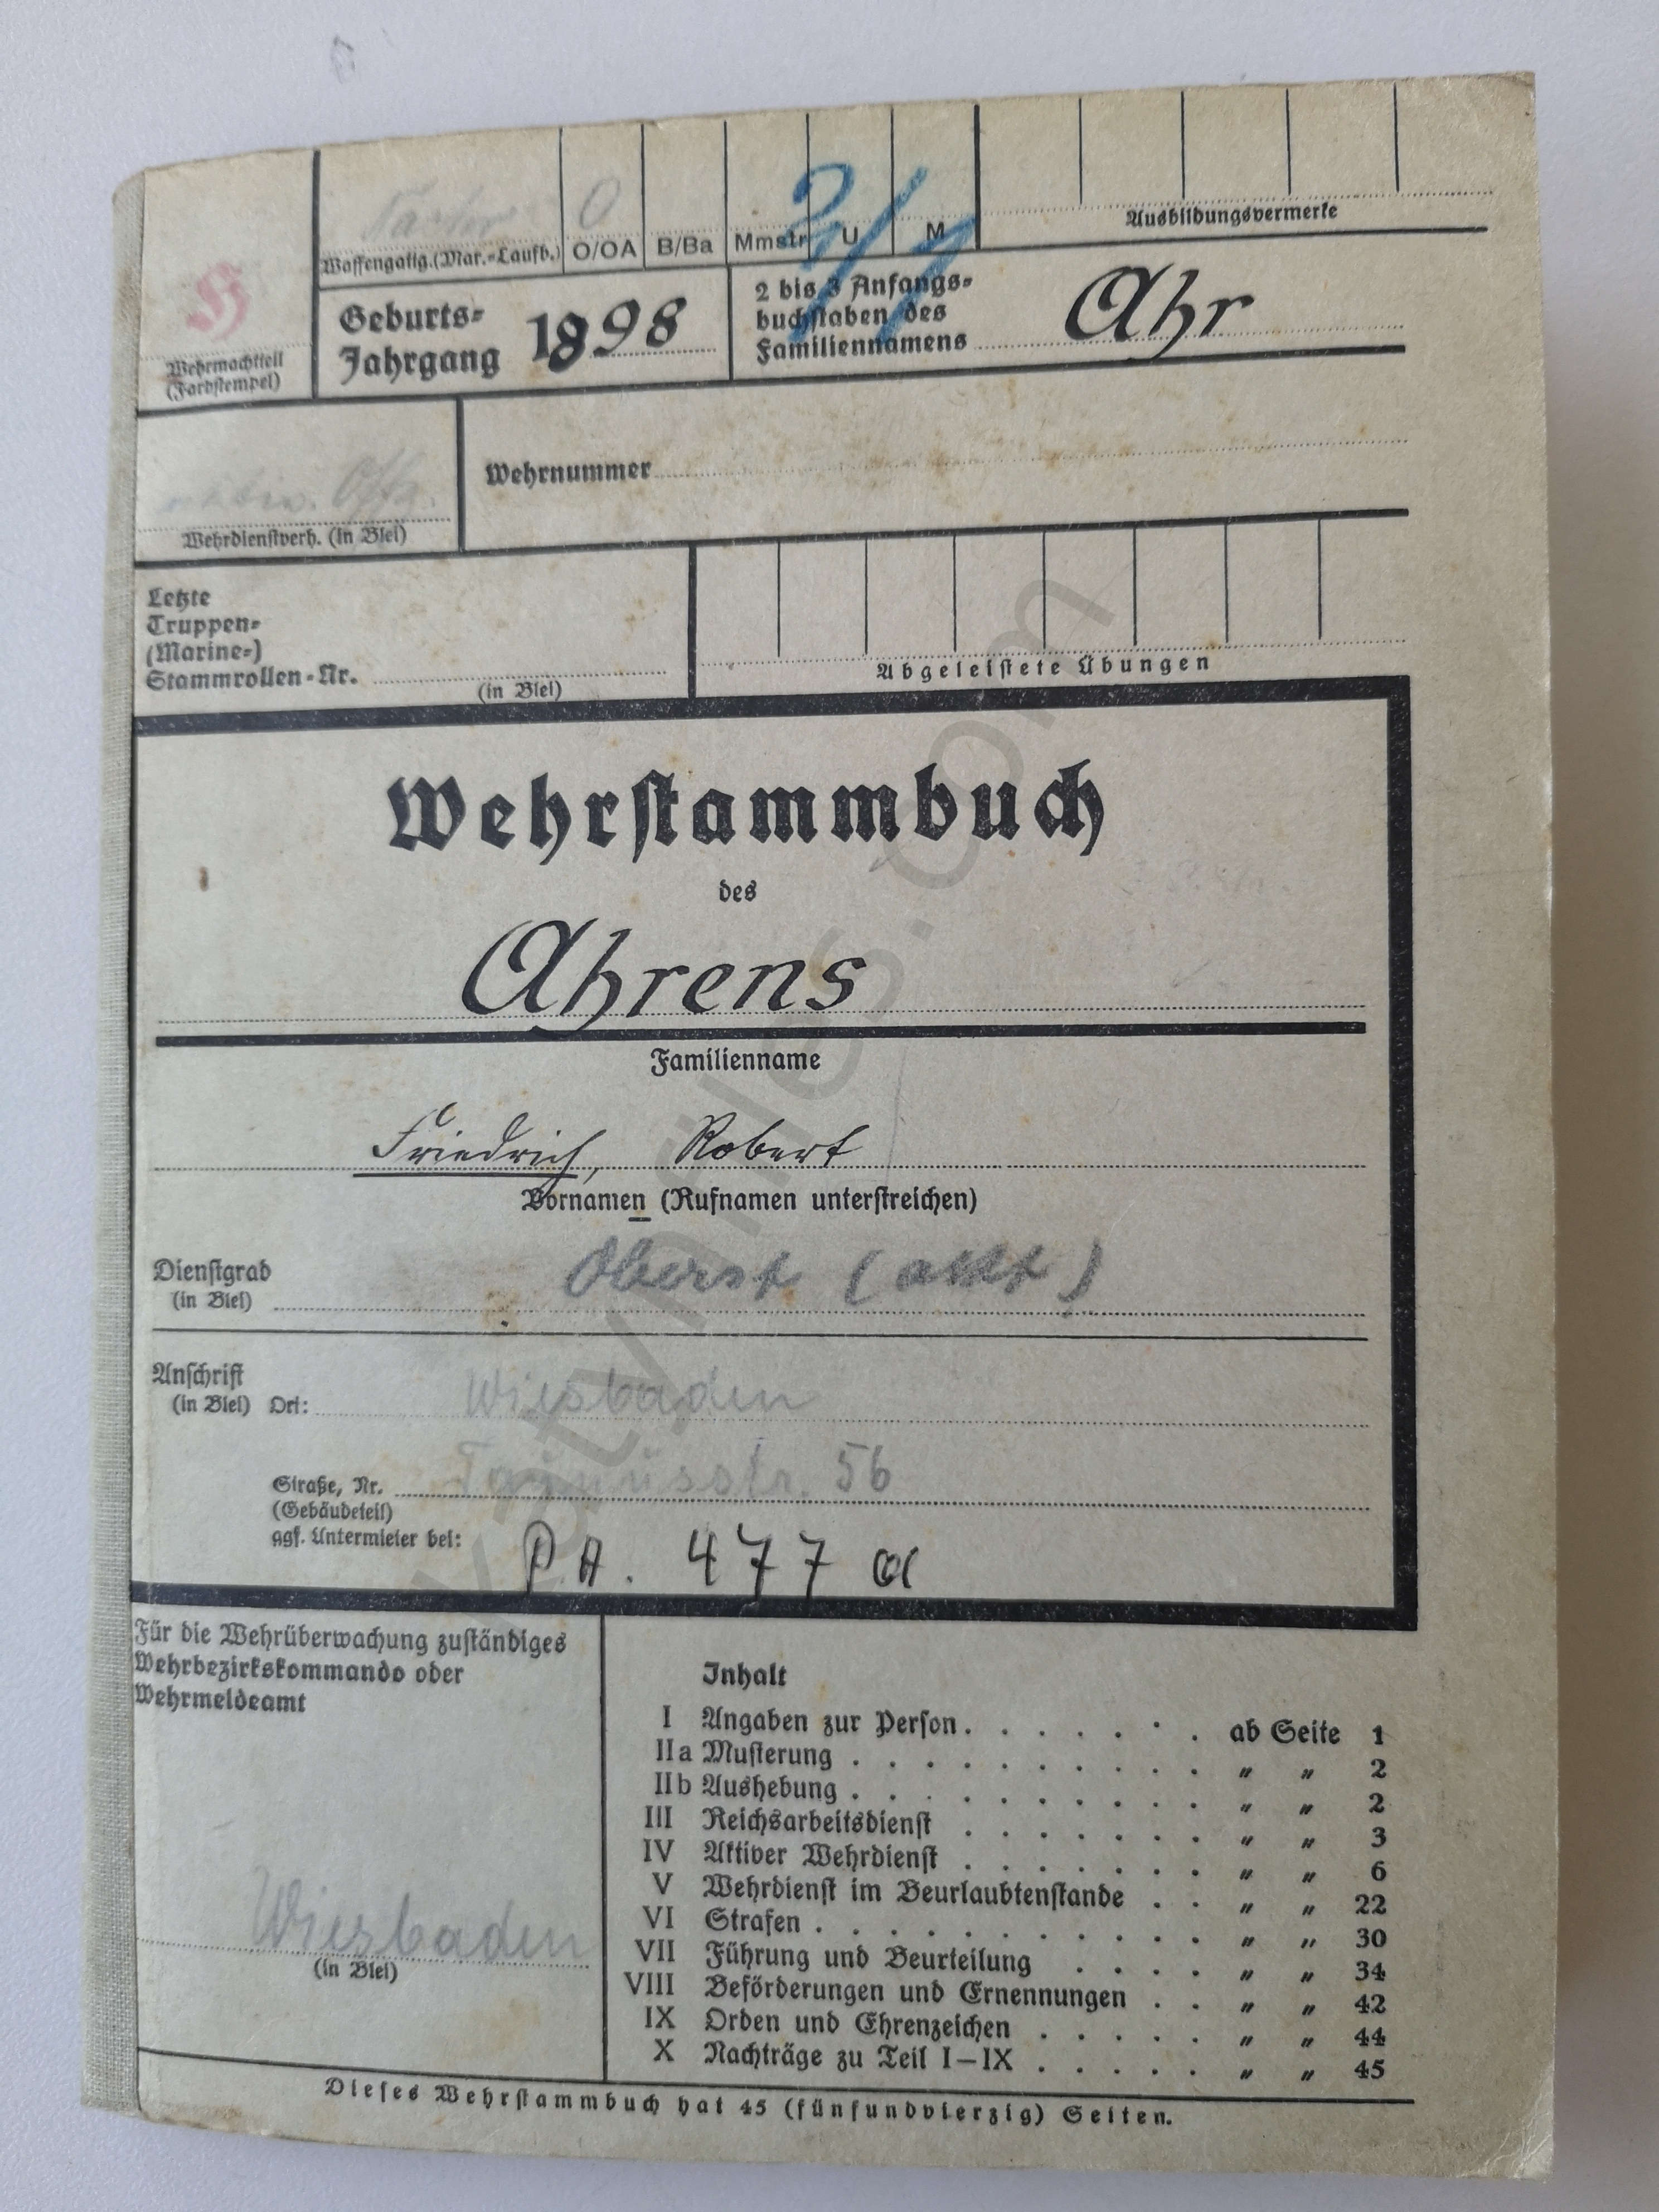 O
Waffengattg.(Mar.-Laufb.) O/OA B/Ba Mmstr U M
Ausbildungsvermerke
H
Wehrmachtteil
(Farbstempel)
Geburts-
Jahrgang 1898
2 bis 3 Anfangs-
buchstaben des
Familiennamens Ahr
Offz.
Wehrdienstverh. (in Blei)
Wehrnummer
Letzte
Truppen-
(Marine-)
Stammrollen-Nr.
(in Blei)
Abgeleistete Übungen
Wehrstammbuch
des
Ahrens
Familienname
Friedrich, Robert
Vornamen (Rufnamen unterstreichen)
Dienstgrad
(in Blei)
Oberst (akt)
Anschrift
(in Blei) Ort: Wiesbaden
Straße, Nr. Taunusstr. 56
(Gebäudeteil)
ggf. Untermieter bei:
PA. 477 a
Für die Wehrüberwachung zuständiges
Wehrbezirkskommando oder
Wehrmeldeamt
Wiesbaden
(in Blei)
Inhalt
I Angaben zur Person . . . . . . . ab Seite 1
IIa Musterung . . . . . . . . . . " " 2
IIb Aushebung . . . . . . . . . . " " 2
III Reichsarbeitsdienst . . . . . . . " " 3
IV Aktiver Wehrdienst . . . . . . . " " 6
V Wehrdienst im Beurlaubtenstande . . " " 22
VI Strafen . . . . . . . . . . . " " 30
VII Führung und Beurteilung . . . . " " 34
VIII Beförderungen und Ernennungen . . " " 42
IX Orden und Ehrenzeichen . . . . . " " 44
X Nachträge zu Teil I–IX . . . . . " " 45
Dieses Wehrstammbuch hat 45 (fünfundvierzig) Seiten.